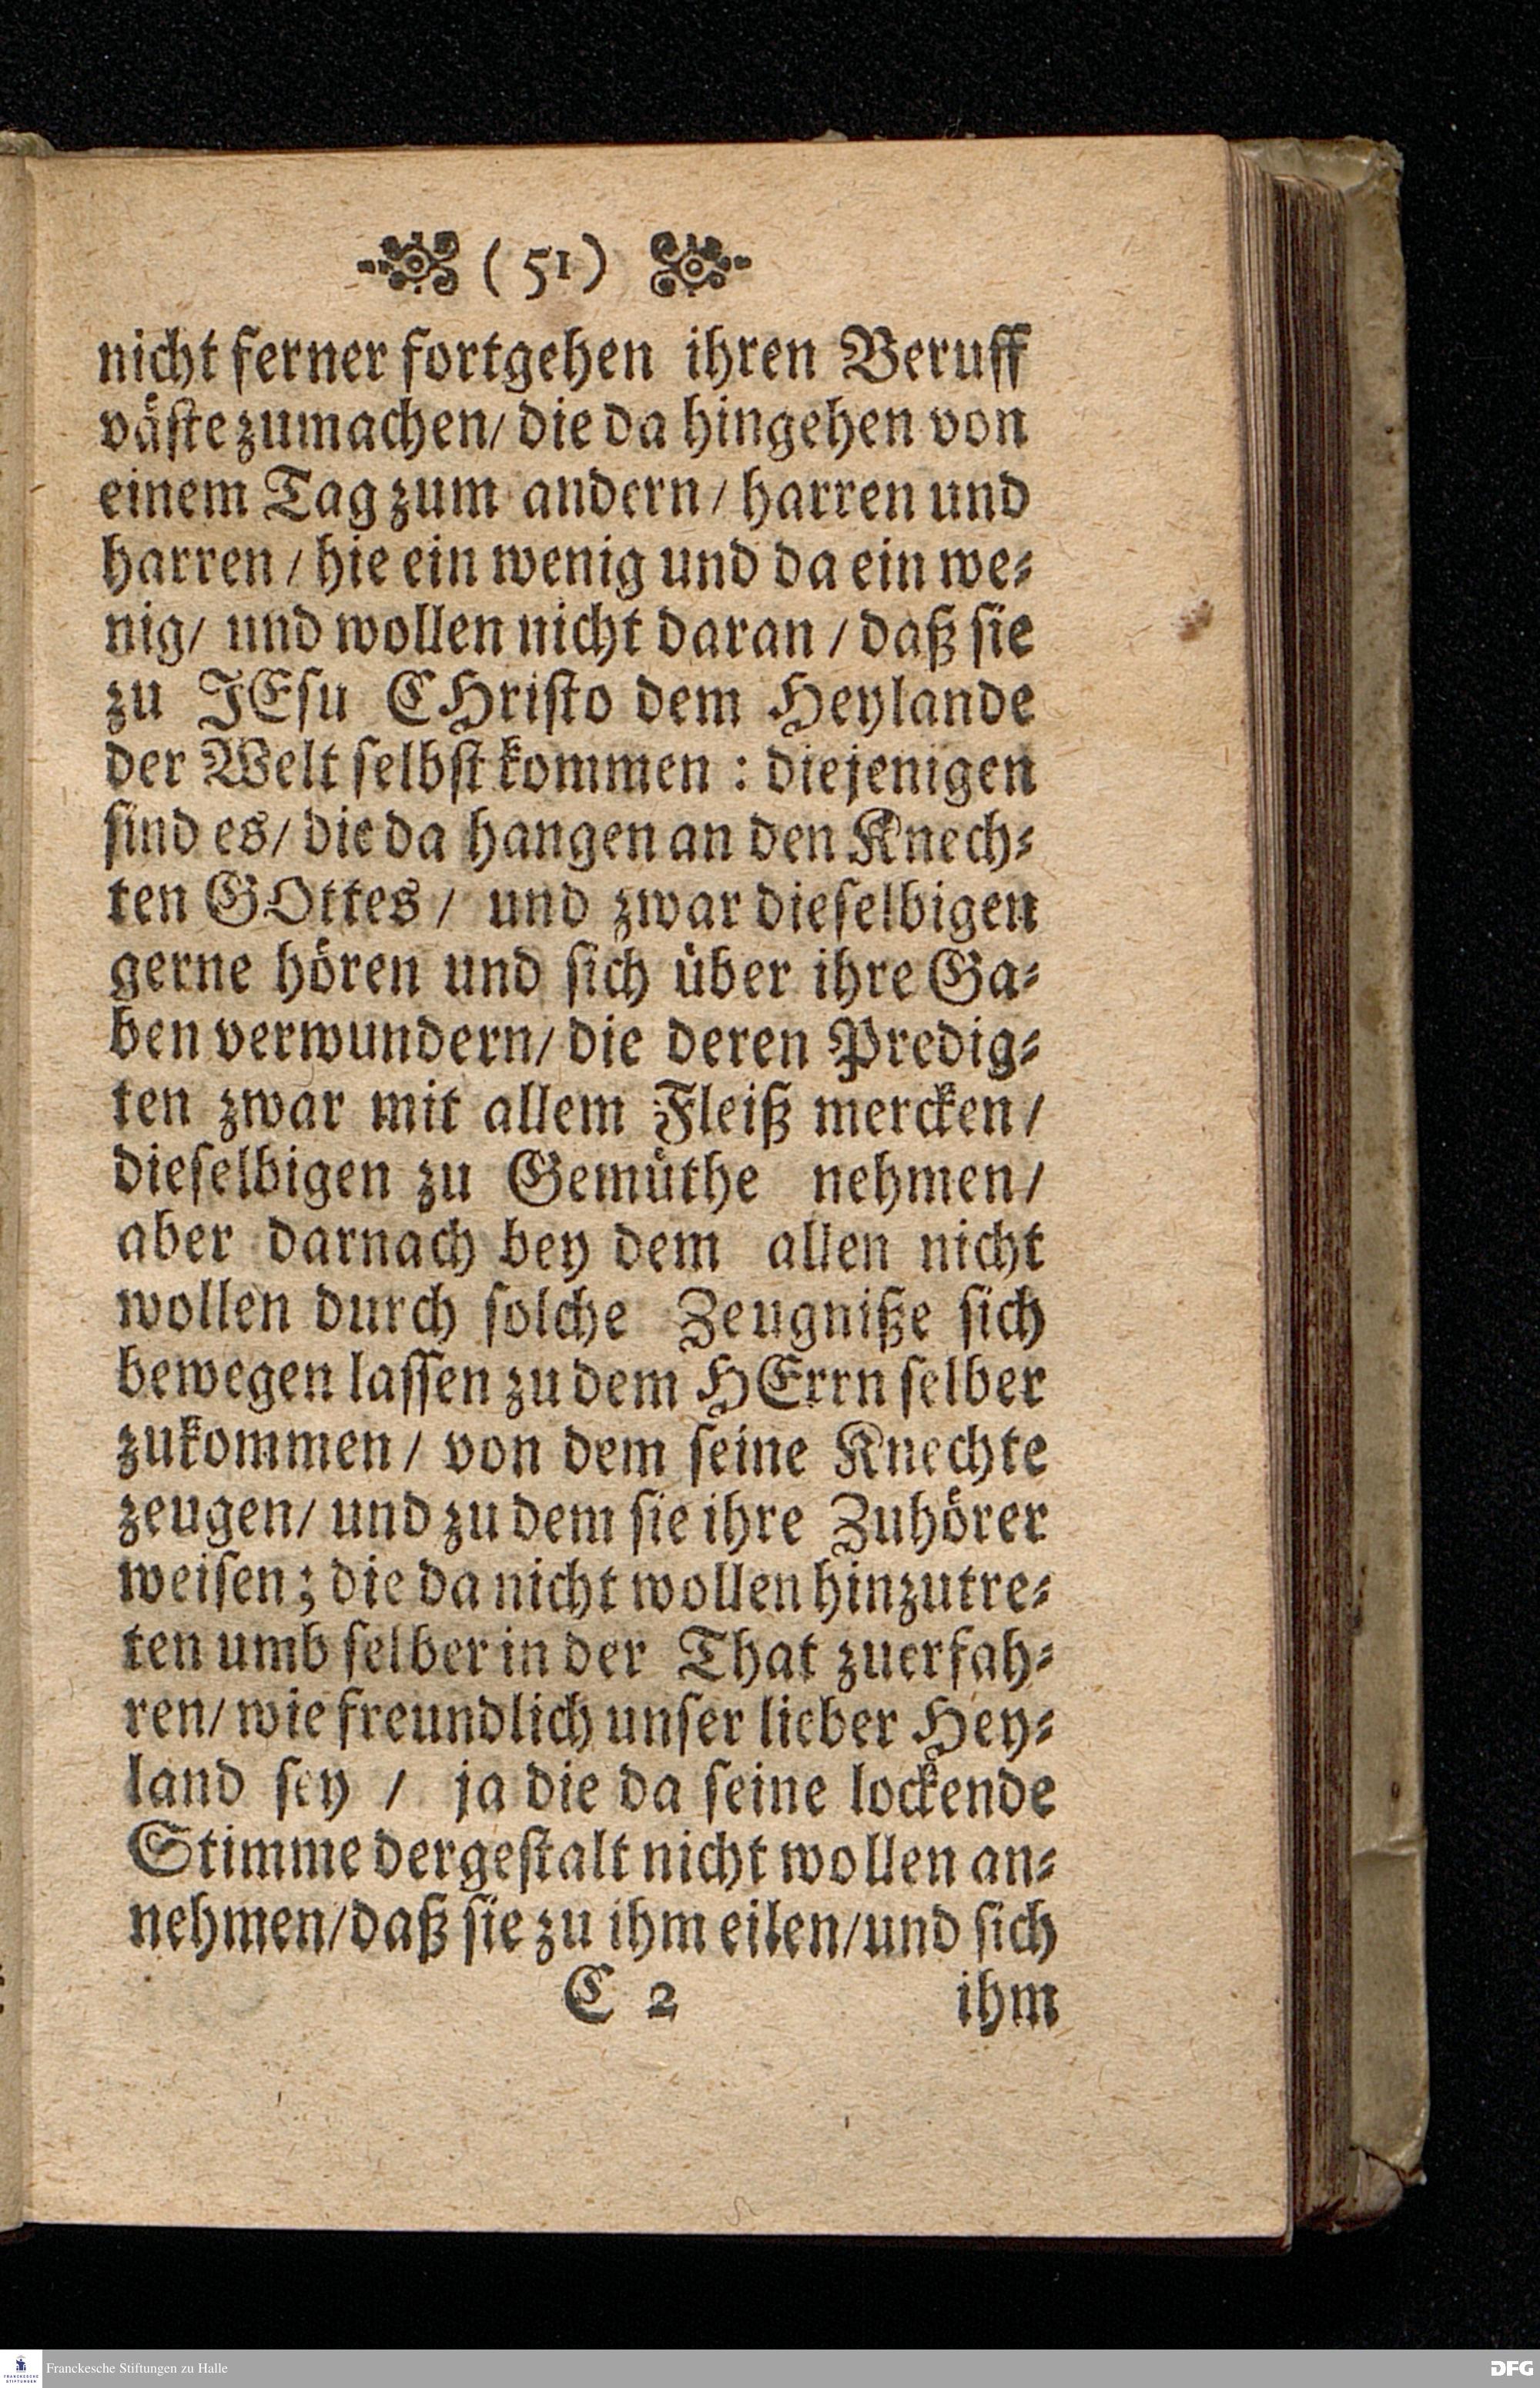 (51)
nicht ferner fortgehen ihren Beruff
våste zumachen/ die da hingehen von
einem Tag zum andern / harren und
harren / hie ein wenig und da ein we-
nig/ und wollen nicht daran / daß sie
zu JEsu CHristo dem Heylande
der Welt selbst kommen : diejenigen
sind es/ die da hangen an den Knech-
ten GOttes / und zwar dieselbigen
gerne hören und sich über ihre Ga-
ben verwundern/ die deren Predig-
ten zwar mit allem Fleiß mercken /
dieselbigen zu Gemüthe nehmen/
aber darnach bey dem allen nicht
wollen durch solche Zeugniße sich
bewegen lassen zu dem HErrn selber
zukommen / von dem seine Knechte
zeugen/ und zu dem sie ihre Zuhörer
weisen; die da nicht wollen hinzutre-
ten umb selber in der That zuerfah-
ren/ wie freundlich unser lieber Hey-
land sey / ja die da seine lockende
Stimme dergestalt nicht wollen an-
nehmen/daß sie zu ihm eilen/und sich
C 2 ihm
Franckesche Stiftungen zu Halle
DFG